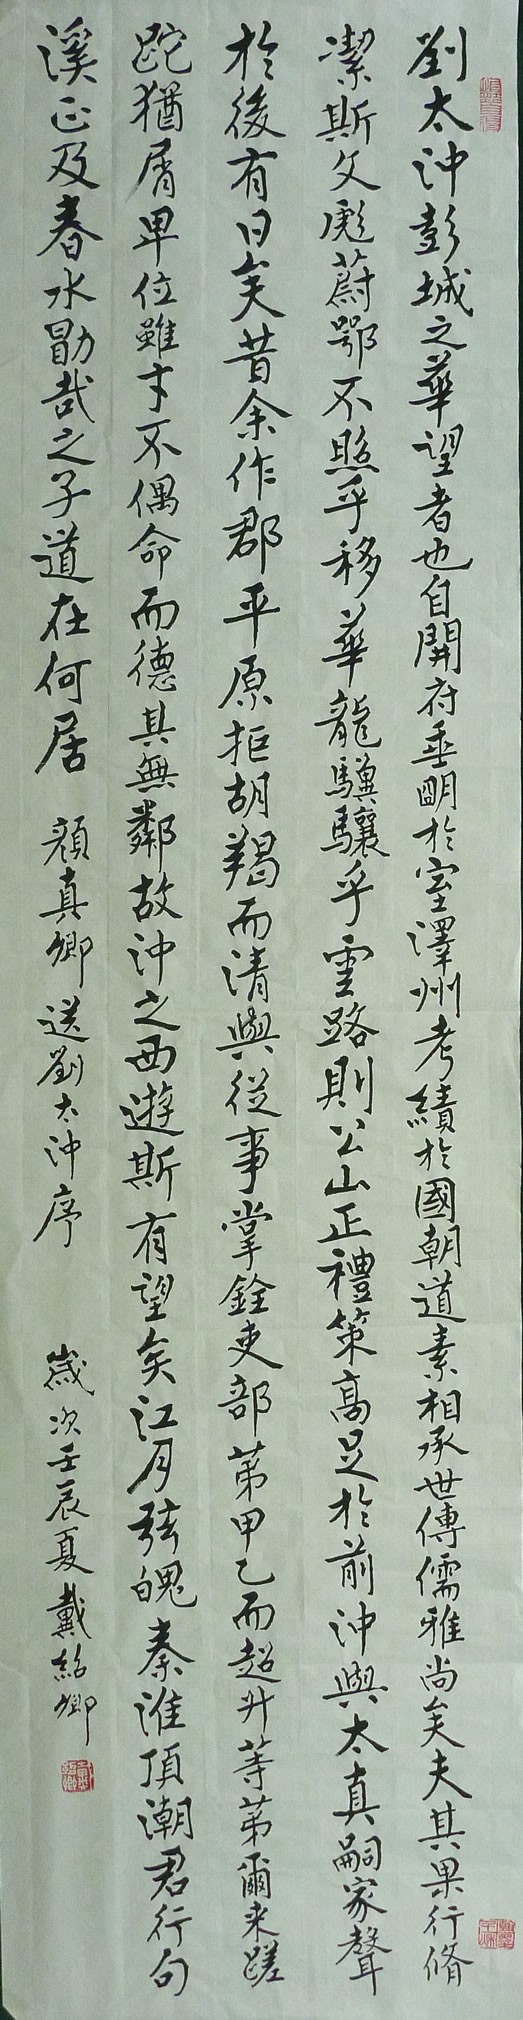 劉太沖彭城之華望者也自開府垂明於室澤州考績於國朝道素相承世傳儒雅尚矣夫其果行脩
潔斯文彪蔚鄂不照乎移華龍驥驤乎雲路則公山正禮策高足於前沖與太真嗣家聲
於後有日矣昔余作郡平原拒胡羯而清與從事掌銓吏部第甲乙而超升等第爾来蹉
跎猶屑卑位雖才不偶命而德其無鄰故沖之西遊斯有望矣江月弦魄秦淮頂潮君行句
溪正及春水勖哉之子道在何居 顏真卿送劉太沖序 歲次壬辰夏戴紹卿